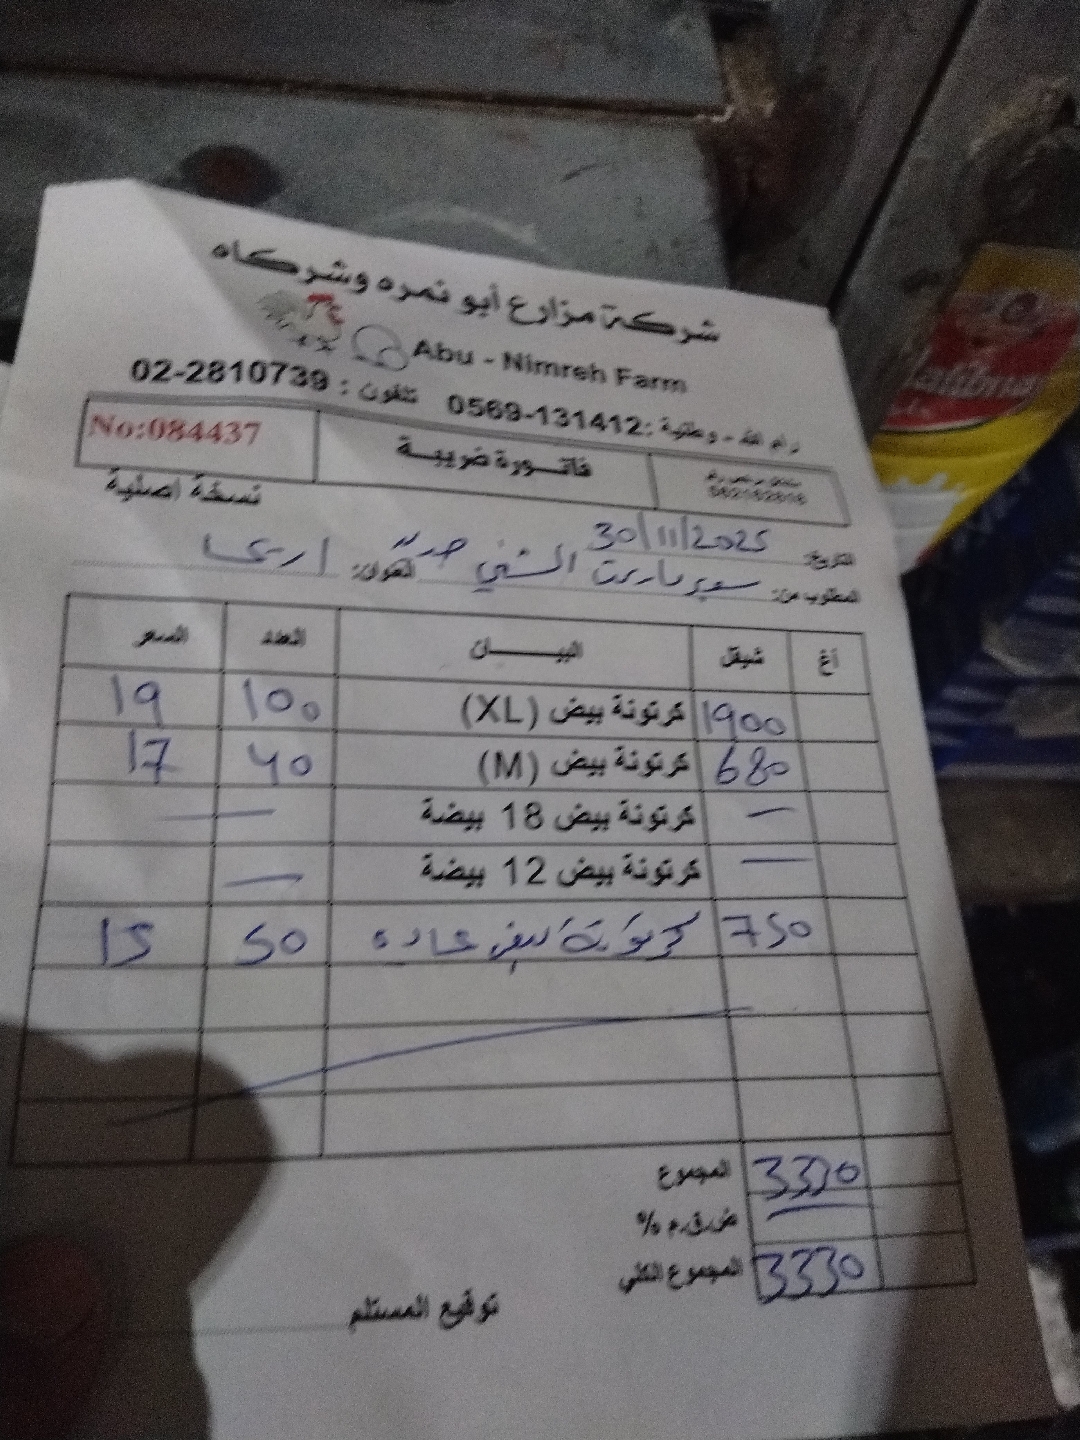 شركة مزارع أبو نمره وشركاه
Abu - Nimreh Farm
رام الله - وطنية: 0569-131412 تلفون: 02-2810739
562182818 فاتورة ضريبة No:084437
نسخة اصلية
التاريخ: 30/11/2025
المطلوب من: سوبر ماركت العنوان: اريحا
أغ شيقل البيـــــان العدد السعر
1900 كرتونة بيض (XL) 100 19
680 كرتونة بيض (M) 40 17
— كرتونة بيض 18 بيضة —
— كرتونة بيض 12 بيضة —
750 كرتونة بيض عاده 50 15
المجموع 3330
ض.ق.م %
المجموع الكلي 3330
توقيع المستلم